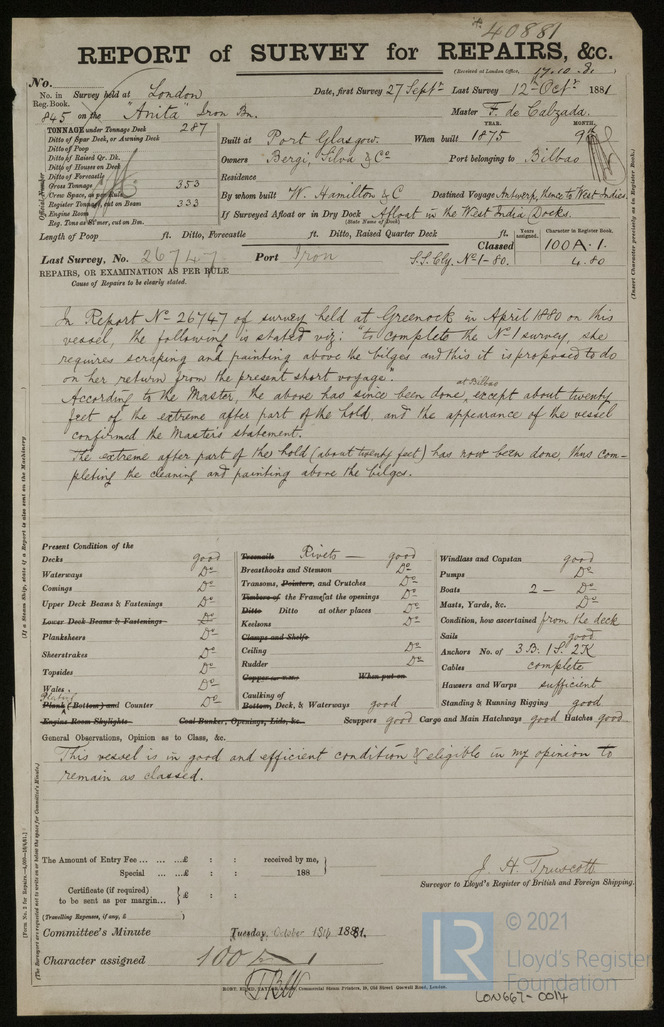 40881
REPORT of SURVEY for REPAIRS, &c.
(Received at London Office, 17.10.81)
No.
No. in Reg. Book. Survey held at London Date, first Survey 27 Septr Last Survey 12th Octr 1881
845 on the "Anita" Iron Bn. Master F. de Calzada.
TONNAGE under Tonnage Deck 287
Ditto of Spar Deck, or Awning Deck
Ditto of Poop
Ditto of Raised Qr. Dk.
Ditto of Houses on Deck
Ditto of Forecastle
Gross Tonnage 353
Crew Space, as per Rule
Register Tonnage, cut on Beam 333
Engine Room
Reg. Tons as Steamer, cut on Bm.
Official Number
YEAR. MONTH.
Built at Port Glasgow. When built 1875 9th
Owners Bergé, Silva & Co Port belonging to Bilbao
Residence
By whom built W. Hamilton & C Destined Voyage Antwerp, thence to West Indies.
If Surveyed Afloat or in Dry Dock Afloat in the West India Docks.
(State Name of Dock)
Length of Poop ft. Ditto, Forecastle ft. Ditto, Raised Quarter Deck ft.
Years assigned. Character in Register Book.
Classed 100A.1.
Last Survey, No. 26747 Port Iron S.S. Cly. No 1-80. 4.80
REPAIRS, OR EXAMINATION AS PER RULE
Cause of Repairs to be clearly stated.
In Report No 26747 of survey held at Greenock in April 1880 on this
vessel, the following is stated viz: "to complete the No 1 survey, she
requires scraping and painting above the bilges and this it is proposed to do
on her return from the present short voyage".
at Bilbao
According to the Master, the above has since been done, except about twenty
feet of the extreme after part of the hold, and the appearance of the vessel
confirmed the Master's statement.
The extreme after part of the hold (about twenty feet) has now been done, thus com-
pleting the cleaning and painting above the bilges.
Present Condition of the
Decks good
Waterways Do
Comings Do
Upper Deck Beams & Fastenings Do
Lower Deck Beams & Fastenings Do
Planksheers Do
Sheerstrakes Do
Topsides Do
Wales Do
Plating
Plank (Bottom) and Counter Do
Engine Room Skylights Coal Bunker, Openings, Lids, &c.
Treenails Rivets — good
Breasthooks and Stemson Do
Transoms, Pointers, and Crutches Do
Timbers of the Frames at the openings Do
Ditto Ditto at other places Do
Keelsons Do
Clamps and Shelfs
Ceiling Do
Rudder Do
Copper When put on
Caulking of
Bottom, Deck, & Waterways good
Windlass and Capstan good
Pumps Do
Boats 2 — Do
Masts, Yards, &c. Do
Condition, how ascertained from the deck
Sails good
Anchors No. of 3.B. 1S. 2K
Cables complete
Hawsers and Warps sufficient
Standing & Running Rigging good
Scuppers good Cargo and Main Hatchways good Hatches good
General Observations, Opinion as to Class, &c.
This vessel is in good and efficient condition & eligible in my opinion to
remain as classed.
The Amount of Entry Fee ... ... ...£ : : received by me,
Special ... ...£ : : 188
Certificate (if required) to be sent as per margin... £ : :
(Travelling Expenses, if any, £ )
J. H. Truscott
Surveyor to Lloyd's Register of British and Foreign Shipping.
Committee's Minute Tuesday, October 18th, 1881.
Character assigned 100 A 1
Commercial Steam Printers, 19, Old Street Goswell Road, London.
(If a Steam Ship, state if a Report is also sent on the Machinery
(Insert Character precisely as in Register Book.)
(The Surveyors are requested not to write on or below the space for Committee's Minute.)
LR
© 2021
Lloyd's Register
Foundation
LON667-0014